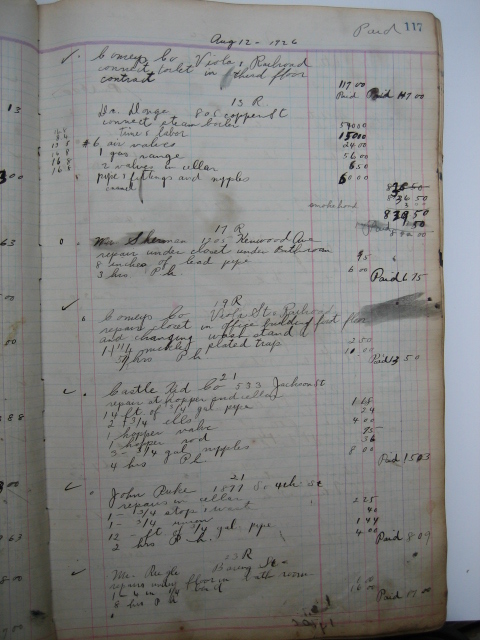 117
Paid
Aug 12 - 1926
Comeys Co Viola & Railroad
connect toilet in third floor
contract
117 00
Paid 117 00
13 R
Dr. 805 Copper St
connect steam boiler
time & labor
590 00
150 00
#6 air valves
24 00
1 gas range
56 00
2 valves in cellar
6 50
pipe fittings and nipples
6 00
smoke hood
839 50
17 R
Wm Sherman 1205 Kenwood Ave
repair under closet under Bathroom
8 inches of lead pipe
95
3 hrs Ph
6 00
Paid 6 75
19 R
Comeys Co Viola St & Railroad
repair closet in office building first floor
and changing wash stand
1-1 1/4 nickle plated trap
2 50
5 1/2 hrs Ph
Paid 13 50
21
Castle Kid Co 533 Jackson St
repair at hopper and cellar
14 ft of 3/4 gal pipe
1 68
2 - 3/4 ells
24
1 hopper valve
4 00
1 hopper rod
75
3 - 3/4 gal nipples
36
4 hrs Ph
8 00
Paid 15 03
21
John 1877 S. 4th St
repairs in cellar
1 - 3/4 stop & waste
2 25
1 - 3/4 union
40
12 - ft of 3/4 gal. pipe
1 44
2 hrs Ph
4 00
Paid 8 09
23 R
Mr.
St -
floor in bath room
8 hrs Ph
16 00
Paid